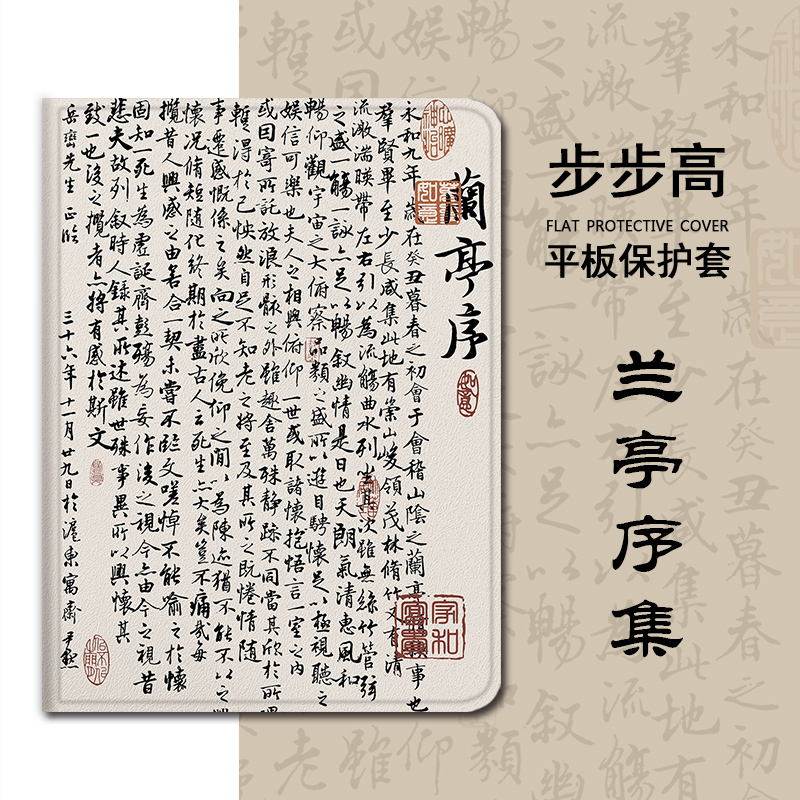 步步高
FLAT PROTECTIVE COVER
平板保护套
兰亭序集
蘭亭序
如意
永和九年歲在癸丑暮春之初會于會稽山陰之蘭亭稧事也
羣賢畢至少長咸集此地有崇山峻領茂林脩竹又有清
流激湍暎帶左右引以為流觴曲水列坐其次雖無絲竹管弦
之盛一觴一詠亦足以暢叙幽情是日也天朗氣清惠風和
暢仰觀宇宙之大俯察品類之盛所以遊目騁懷足以極視聽之
娛信可樂也夫人之相與俯仰一世或取諸懷抱悟言一室之內
或因寄所託放浪形骸之外雖趣舍萬殊静躁不同當其欣於所遇
暫得於己怏然自足不知老之將至及其所之既惓情隨
事遷感慨係之矣向之所欣俛仰之間以為陳迹猶不能不以之興
懷況脩短隨化終期於盡古人云死生亦大矣豈不痛哉每
攬昔人興感之由若合一契未嘗不臨文嗟悼不能喻之於懷
固知一死生為虛誕齊彭殤為妄作後之視今亦由今之視昔
悲夫故列叙時人錄其所述雖世殊事異所以興懷其
致一也後之攬者亦將有感於斯文
岳巒先生正臨
三十六年十一月廿九日於滬東寓齋
家和富貴